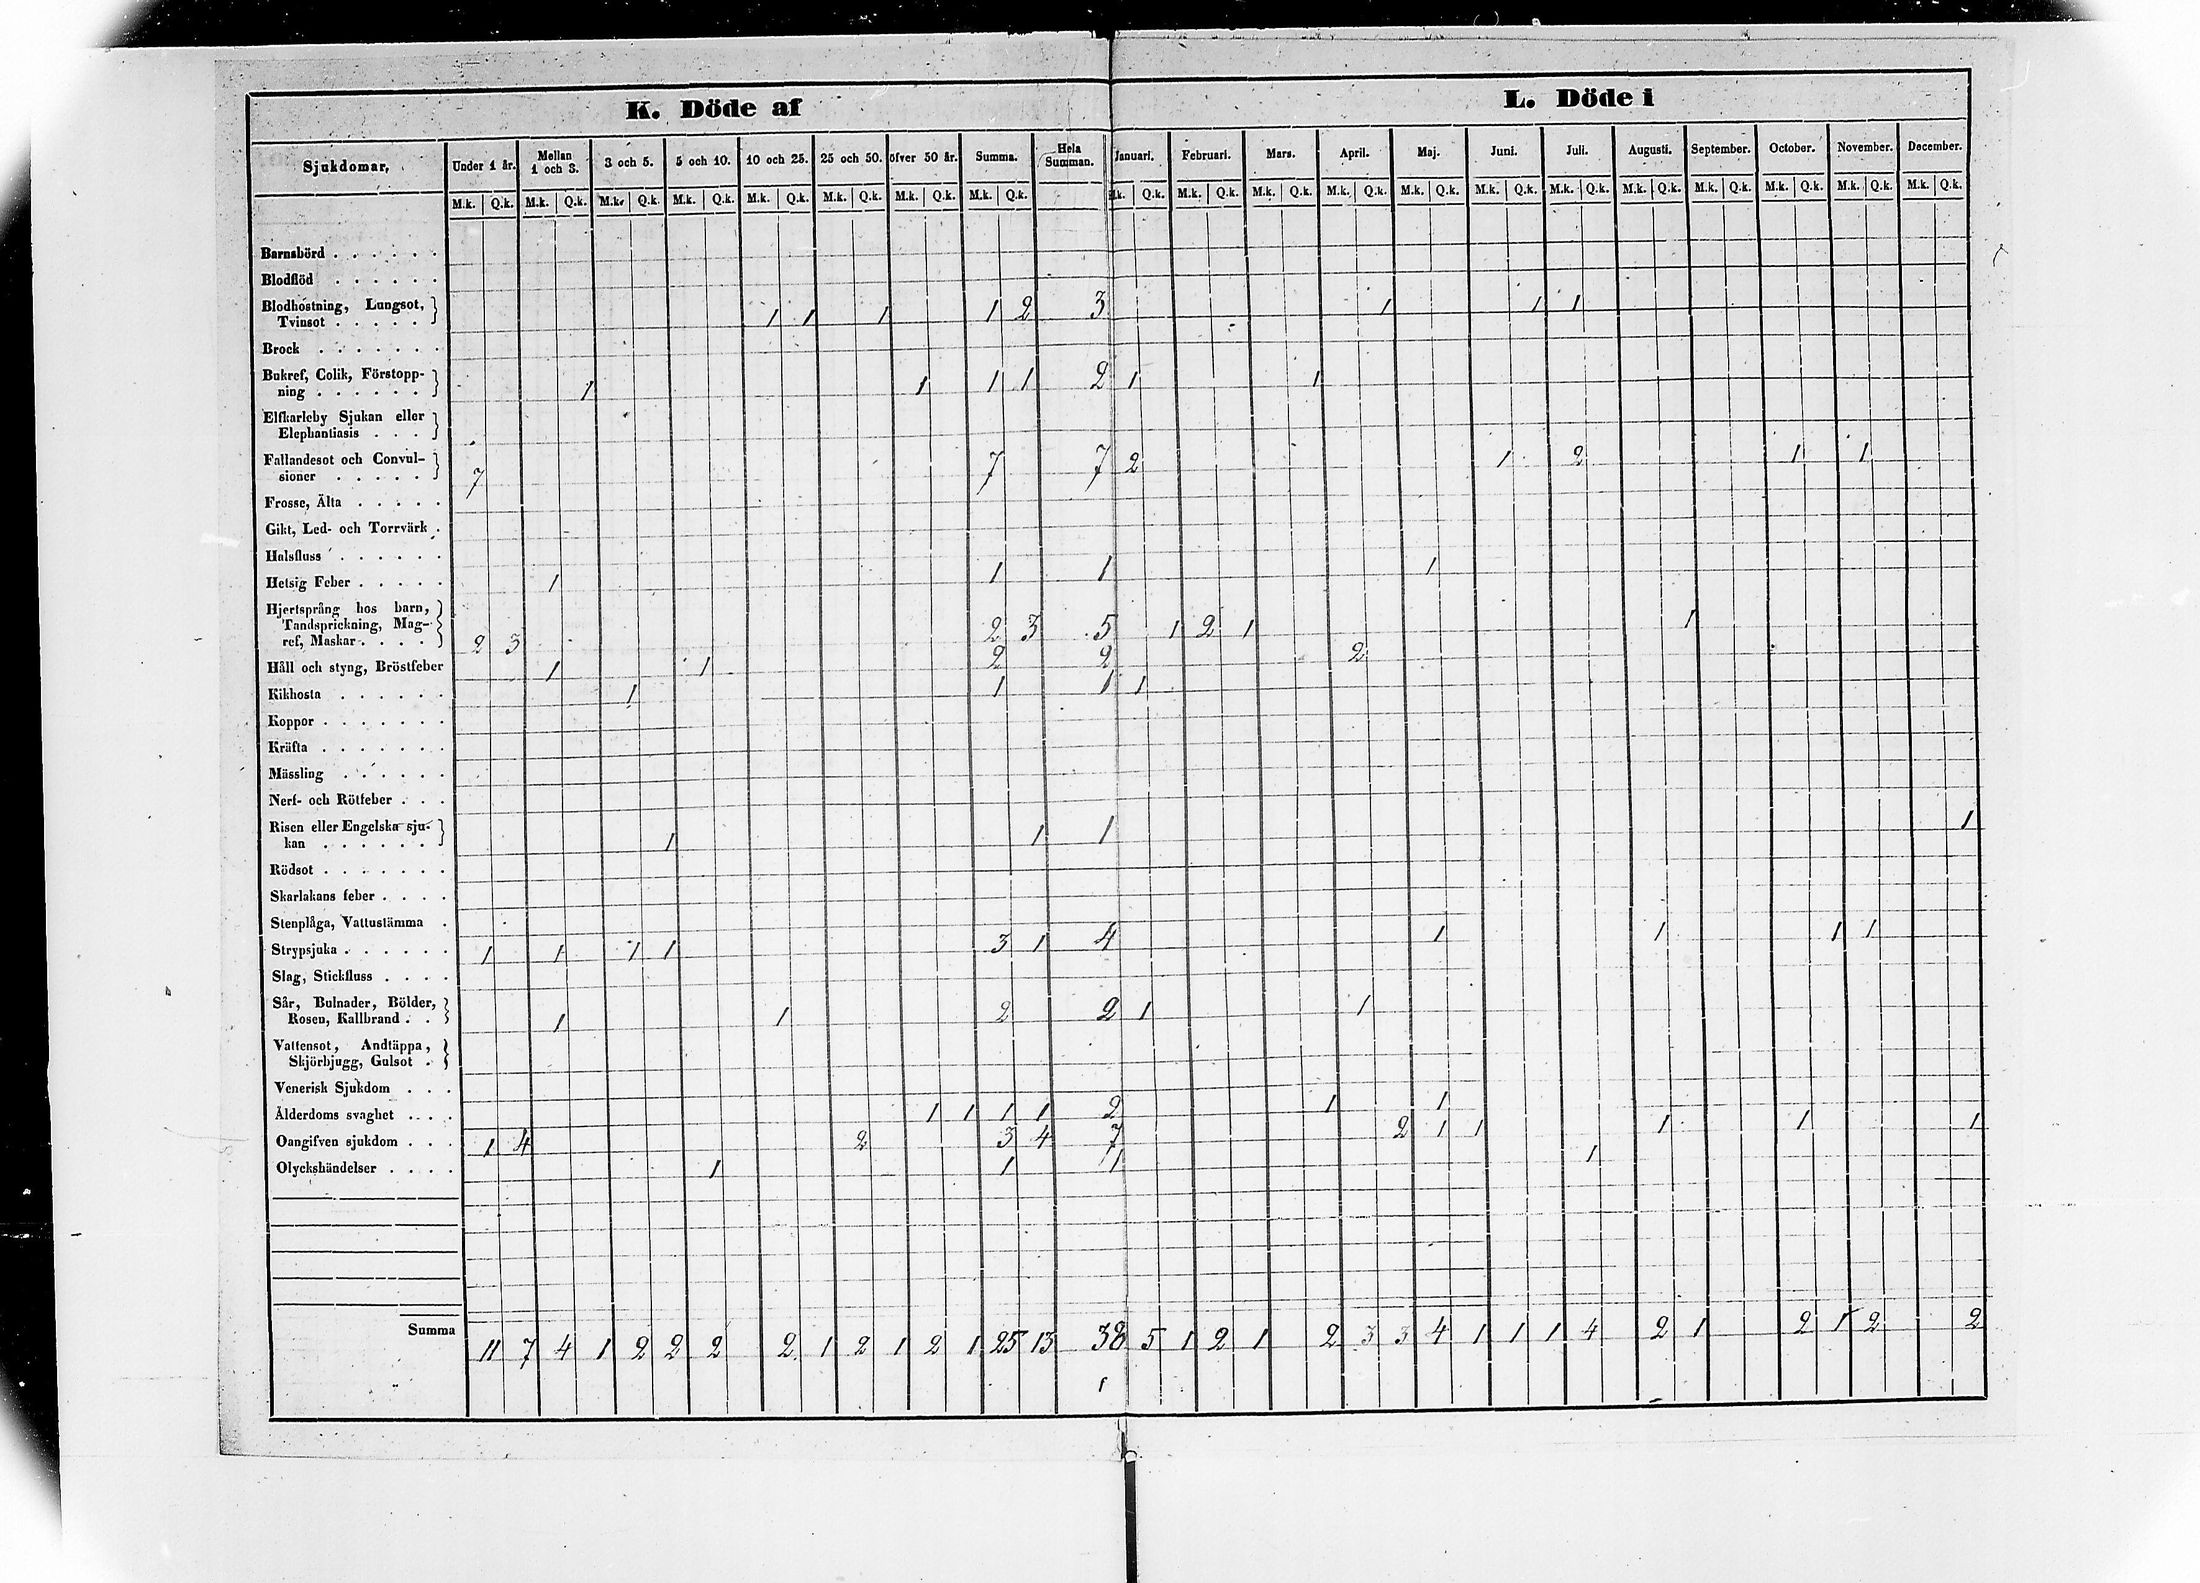 K. Döde af
L. Döde i
Sjukdomar, Under 1 år. Mellan 1 och 3. 3 och 5. 5 och 10. 10 och 25. 25 och 50. öfver 50 år. Summa. Hela Summan. Januari. Februari. Mars. April. Maj. Juni. Juli. Augusti. September. October. November. December.
M.k. Q.k. M.k. Q.k. M.k. Q.k. M.k. Q.k. M.k. Q.k. M.k. Q.k. M.k. Q.k. M.k. Q.k. M.k. Q.k. M.k. Q.k. M.k. Q.k. M.k. Q.k. M.k. Q.k. M.k. Q.k. M.k. Q.k. M.k. Q.k. M.k. Q.k. M.k. Q.k. M.k. Q.k. M.k. Q.k.
Barnsbörd . . . . . .
Blodflöd . . . . . .
Blodhostning, Lungsot,
Tvinsot . . . . . 1 1 1 1 2 3 1 1 1
Brock . . . . . . .
Bukref, Colik, Förstopp-
ning . . . . . . 1 1 1 1 2 1 1
Elfkarleby Sjukan eller
Elephantiasis . . .
Fallandesot och Convul-
sioner . . . . . 7 7 7 2 1 2 1 1
Frosse, Älta . . . . .
Gikt, Led- och Torrvärk .
Halsfluss . . . . . .
Hetsig Feber . . . . . 1 1 1 1
Hjertsprång hos barn,
Tandsprickning, Mag-
ref, Maskar . . . . 2 3 2 3 5 1 2 1 1
Håll och styng, Bröstfeber 1 1 2 2 2
Kikhosta . . . . . . 1 1 1 1
Koppor . . . . . . .
Kräfta . . . . . . .
Mässling . . . . . .
Nerf- och Rötfeber . . .
Risen eller Engelska sju-
kan . . . . . . 1 1 1 1
Rödsot . . . . . . .
Skarlakans feber . . . .
Stenplåga, Vattustämma .
Strypsjuka . . . . . . 1 1 1 1 3 1 4 1 1 1 1
Slag, Stickfluss . . . .
Sår, Bulnader, Bölder,
Rosen, Kallbrand . . 1 1 2 2 1 1
Vattensot, Andtäppa,
Skjörbjugg, Gulsot .
Venerisk Sjukdom . . .
Ålderdoms svaghet . . . 1 1 1 1 2 1 1
Oangifven sjukdom . . . 1 4 2 3 4 7 2 1 1 1 1 1
Olyckshändelser . . . . 1 1 1 1
Summa 11 7 4 1 2 2 2 2 1 2 1 2 1 25 13 38 5 1 2 1 2 3 3 4 1 1 1 4 2 1 2 1 2 2